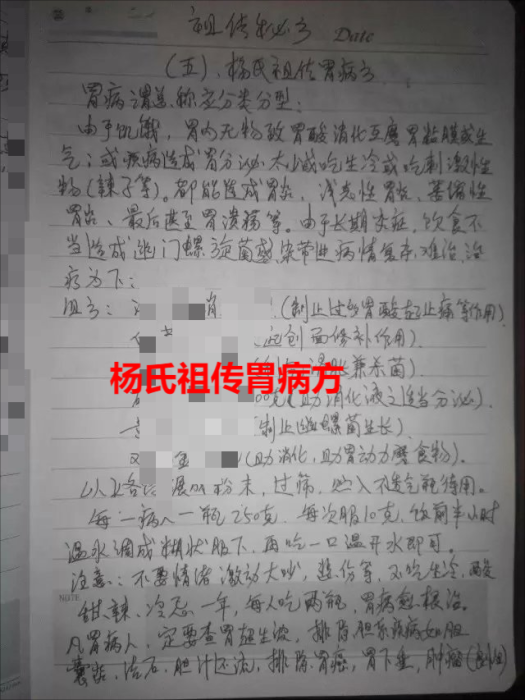 祖传秘方 Date
(五)、杨氏祖传胃病方
胃病谓总称应分类分型:
由于饥饿,胃内无物致胃酸消化互磨胃粘膜或生
气;或疾病造成胃分泌太少或吃生冷或吃刺激性
物(辣子等)。都能造成胃炎,浅表性胃炎、萎缩性
胃炎、最后甚至胃溃疡等。由于长期炎症,饮食不
当造成幽门螺旋菌感染带进病情复杂,难治,治
疗为下:
组方: (制止过多胃酸起止痛等作用)
起创面修补作用)
兼杀菌)
杨氏祖传胃病方
00克(助消化液之适当分泌)
制止幽螺菌生长)
(助消化,助胃动力磨食物)。
以上各 粉末,过筛,然入不透气瓶待用。
每一病人一瓶250克,每次服10克,饭前半小时
温水调成糊状服下,再吃一口温开水即可。
注意:不要情绪激动大吵,悲伤等,不吃生冷,酸
甜、辣、冷忌一年,每人吃两瓶,胃病愈根治。
NOTE
凡胃病人一定要查胃超生波,排除胆系疾病如胆
囊炎,结石,胆汁还流,排除胃癌,胃下垂,肿瘤